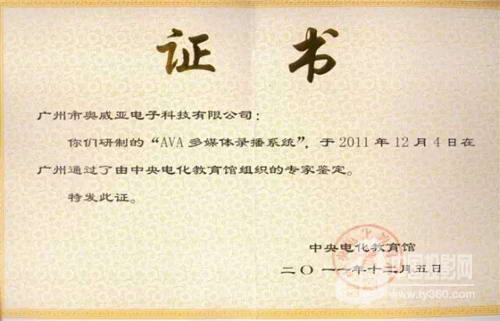 证 书
广州市奥威亚电子科技有限公司：
你们研制的“AVA 多媒体录播系统”，于 2011 年 12 月 4 日在
广州通过了由中央电化教育馆组织的专家鉴定。
特发此证。
中央电化教育馆
二〇一一年十二月五日
中国投影网
www.ty360.com